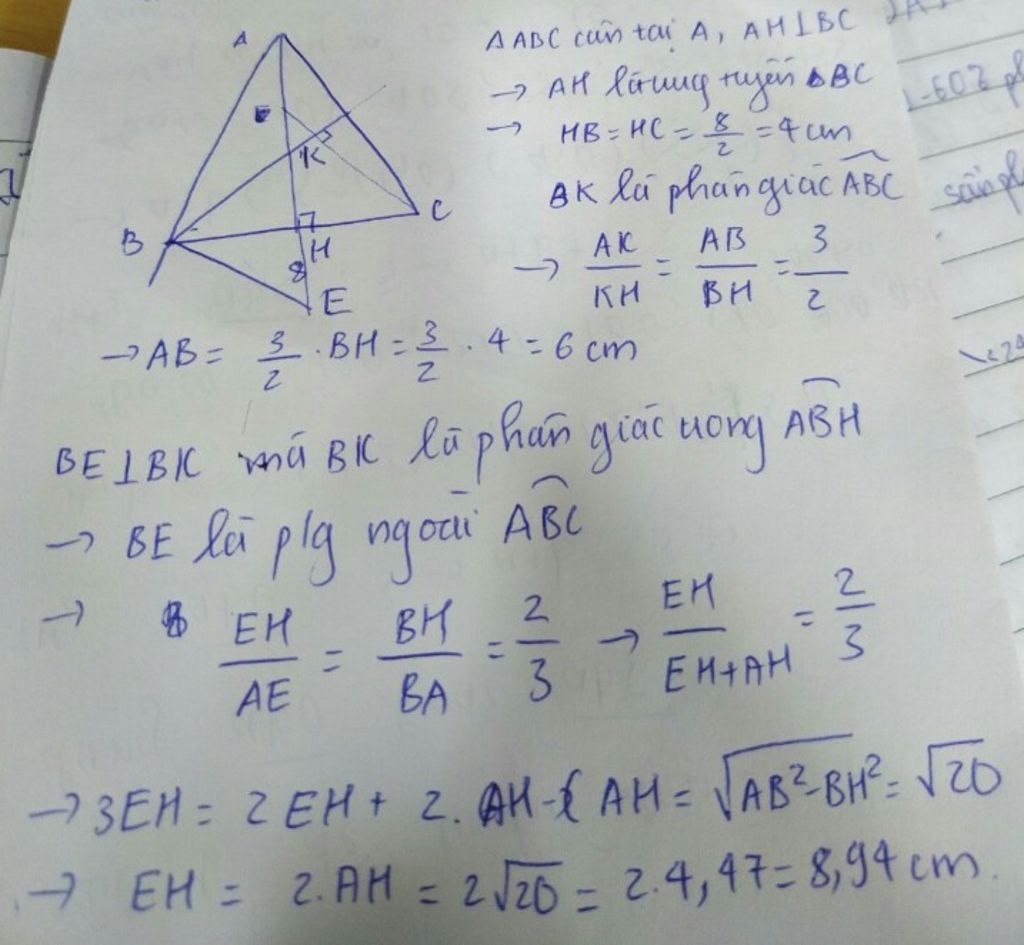 ΔABC cân tại A, AH⊥BC
→ AH là trung tuyến ΔBC
→ HB = HC = 8/2 = 4 cm
BK là phân giác ABC
→ AK/KH = AB/BH = 3/2
A
K
B
C
H
8
E
→ AB = 3/2 . BH = 3/2 . 4 = 6 cm
BE⊥BK mà BK là phân giác trong ABH
→ BE là p/g ngoài ABC
→ EH/AE = BH/BA = 2/3 → EH/EH+AH = 2/3
→ 3EH = 2EH + 2. AH
AH = √AB²-BH² = √20
→ EH = 2.AH = 2√20 = 2.4,47 = 8,94 cm.